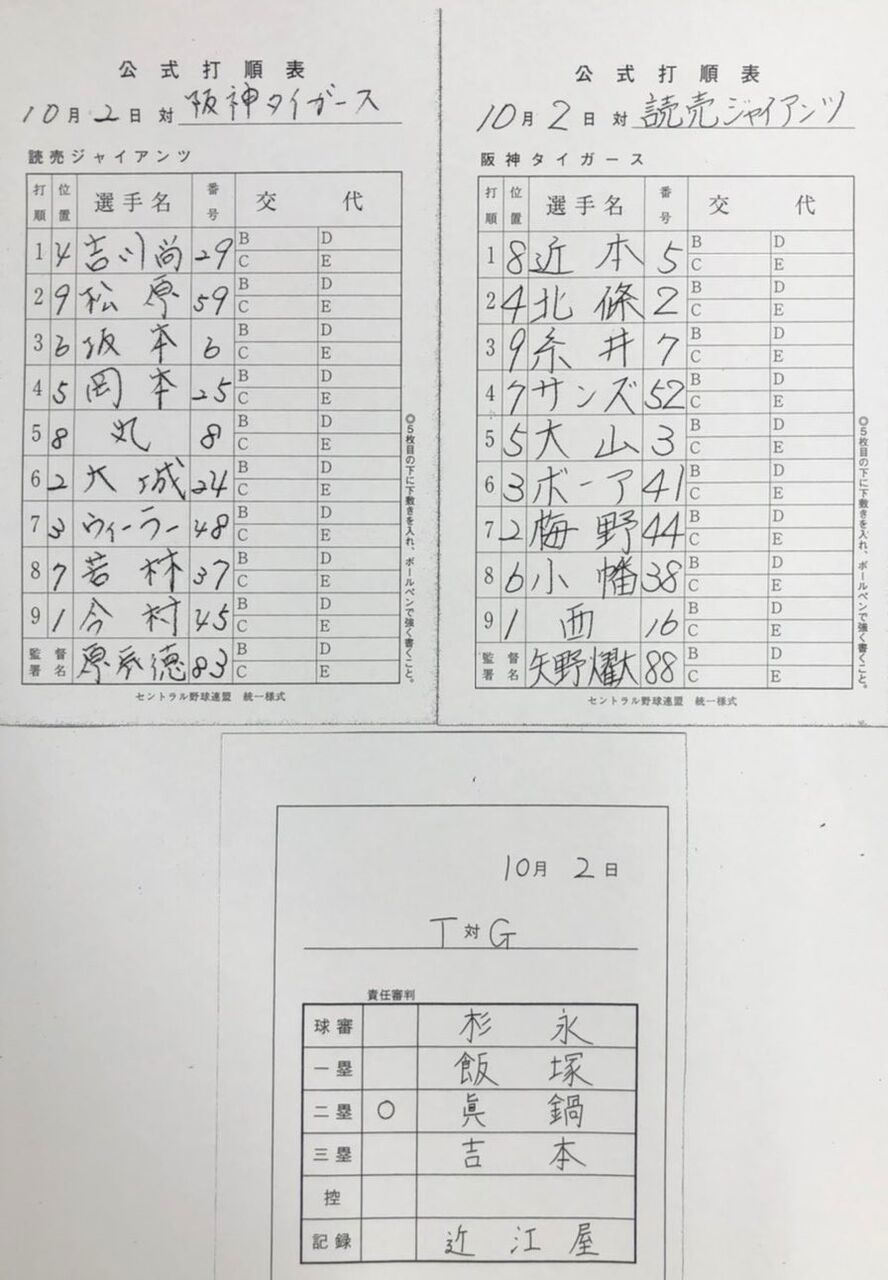 公式打順表
10月2日 対 阪神タイガース
読売ジャイアンツ
打順 位置 選手名 番号 交代
1 4 吉川尚 29 B D C E
2 9 松原 59 B D C E
3 6 坂本 6 B D C E
4 5 岡本 25 B D C E
5 8 丸 8 B D C E
6 2 大城 24 B D C E
7 3 ウィーラー 48 B D C E
8 7 若林 37 B D C E
9 1 今村 45 B D C E
監督署名 原辰徳 83 B D C E
◎5枚目の下に下敷きを入れ、ボールペンで強く書くこと。
セントラル野球連盟 統一様式
公式打順表
10月2日 対 読売ジャイアンツ
阪神タイガース
打順 位置 選手名 番号 交代
1 8 近本 5 B D C E
2 4 北條 2 B D C E
3 9 糸井 7 B D C E
4 7 サンズ 52 B D C E
5 5 大山 3 B D C E
6 3 ボーア 41 B D C E
7 2 梅野 44 B D C E
8 6 小幡 38 B D C E
9 1 西 16 B D C E
監督署名 矢野燿大 88 B D C E
◎5枚目の下に下敷きを入れ、ボールペンで強く書くこと。
セントラル野球連盟 統一様式
10月2日
T対G
責任審判
球審 杉永
一塁 飯塚
二塁 ○ 眞鍋
三塁 吉本
控
記録 近江屋